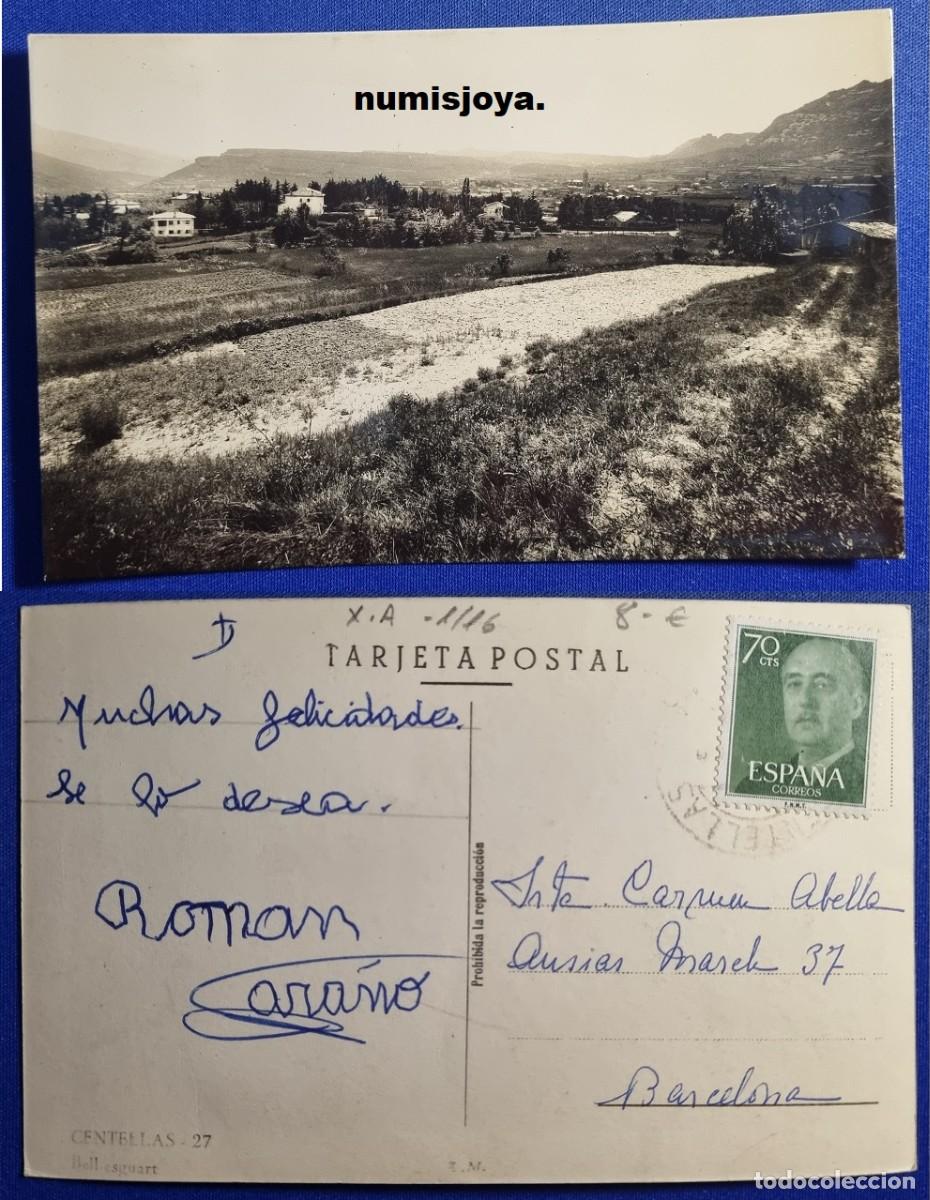 numisjoya.
X.A - 1/16
8.- €
TARJETA POSTAL
70
CTS
ESPAÑA
CORREOS
F.N.M.T.
Muchas felicidades
se lo desea.
Roman
Prohibida la reproducción
Srta. Carmen Abella
Ausias March 37
Barcelona
CENTELLAS - 27
Bell-esguart
todocoleccion